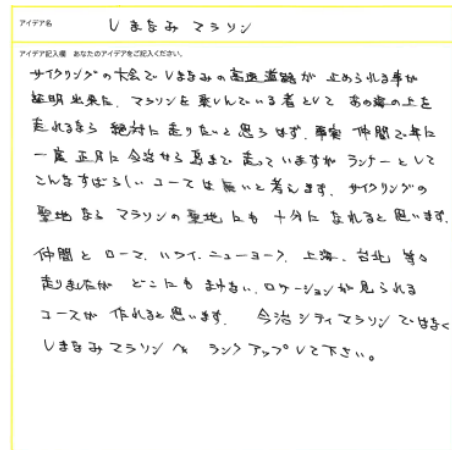 アイデア名
しまなみ マラソン
アイデア記入欄 あなたのアイデアをご記入ください。
サイクリングの大会で しまなみの高速道路が 止められる事が
証明出来た、マラソンを楽しんでいる者として あの海の上を
走れるなら 絶対に走りたいと思うはず、事実 仲間で年に
一度 正月に 今治から 島まで 走っていますが ランナーとして
こんなすばらしい コースは無いと考えます。サイクリングの
聖地なら マラソンの聖地にも 十分になれると思います。
仲間と ローマ、ハワイ、ニューヨーク、上海、台北 等々
走りましたが どこにも まけない、ロケーションが見られる
コースが 作れると思います。 今治シティマラソン ではなく
しまなみマラソン へ ランクアップして下さい。